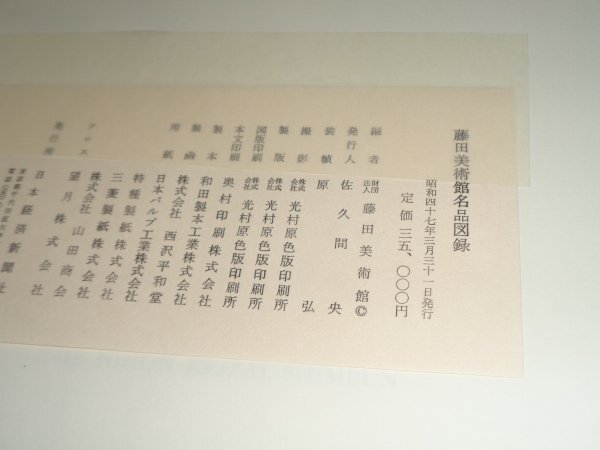 藤田美術館名品図録
昭和四十七年三月三十一日発行
定価 三五、〇〇〇円
編者 財団法人 藤田美術館©
発行人 佐久間 央
装幀 原 弘
撮影 株式会社 光村原色版印刷所
製版 株式会社 光村原色版印刷所
図版印刷 株式会社 光村原色版印刷所
本文印刷 奥村印刷株式会社
製本 和田製本工業株式会社
製函 株式会社 西沢平和堂
用紙 日本パルプ工業株式会社
特種製紙株式会社
三菱製紙株式会社
クロス 株式会社 山田商会
望月株式会社
発行所 日本経済新聞社